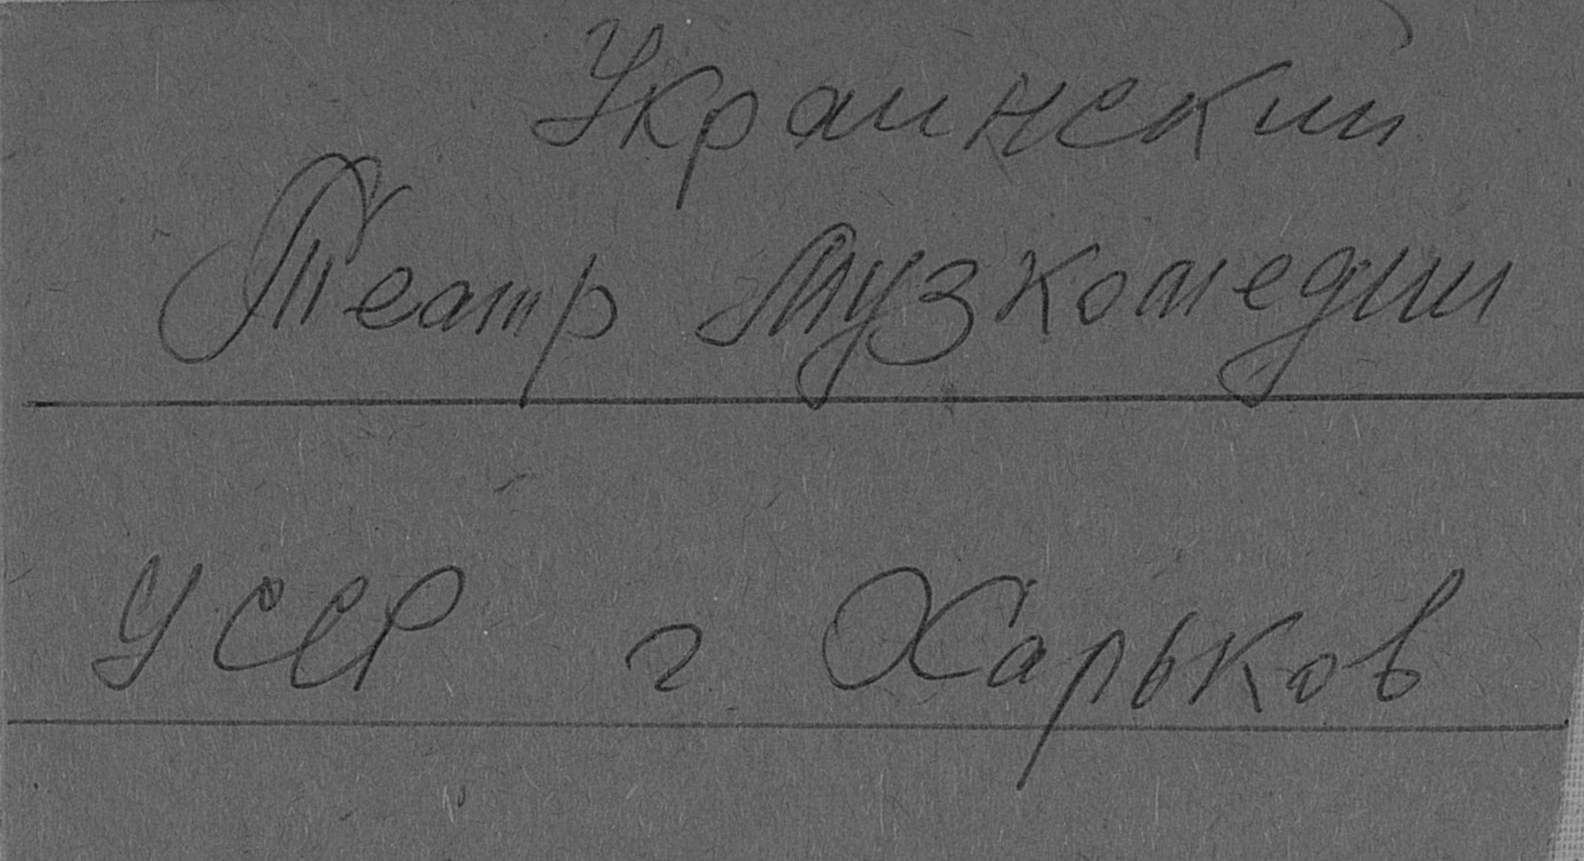 Украинский
Театр Музкомедии
УССР г Харьков